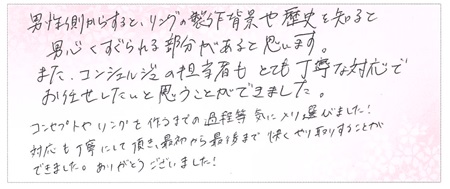 男性側からすると、リングの製作背景や歴史を知ると
男心くすぐられる部分があると思います。
また、コンシェルジュの担当者も とても丁寧な対応で
お任せしたいと思うことができました。
コンセプトや リングを作るまでの過程等 気に入り選びました!
対応も丁寧にして頂き、最初から最後まで 快くやり取りすることが
できました。ありがとうございました!